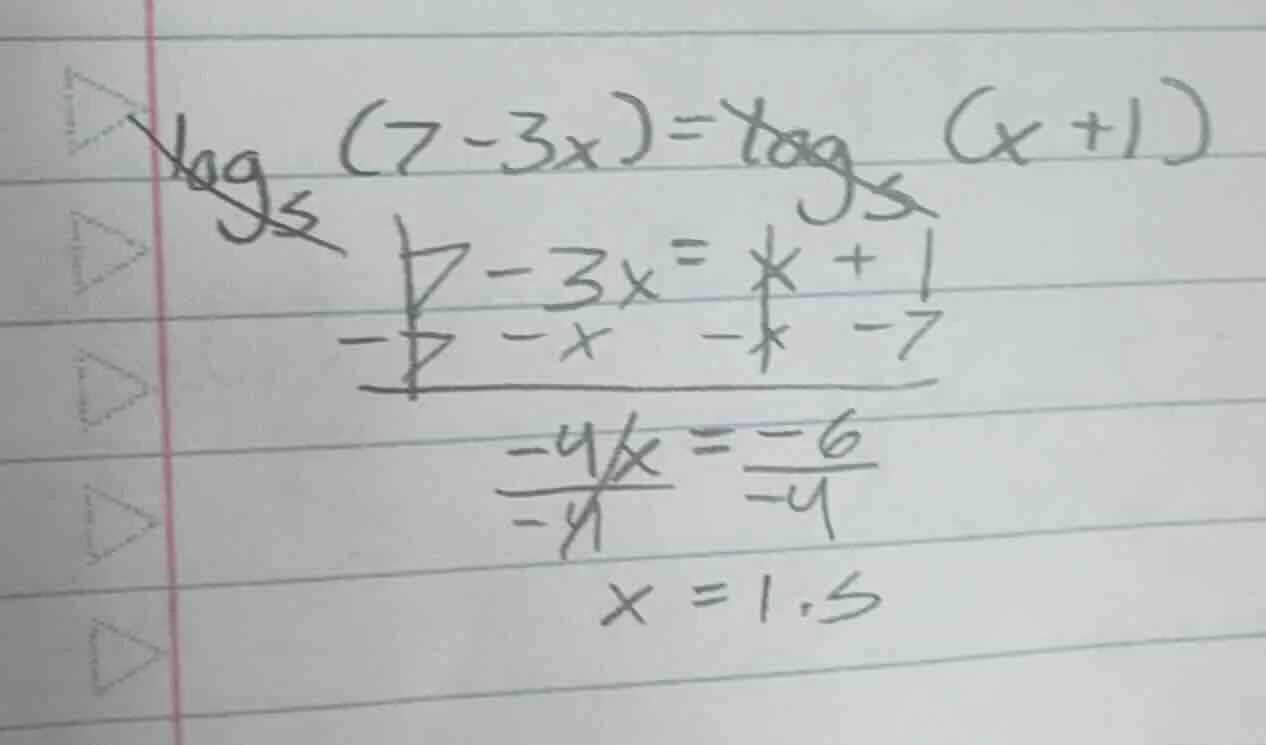 log₅ (7-3x) = log₅ (x+1)
7 - 3x = x + 1
-7 - x - x - 7
-4x = -6
-4 -4
x = 1.5